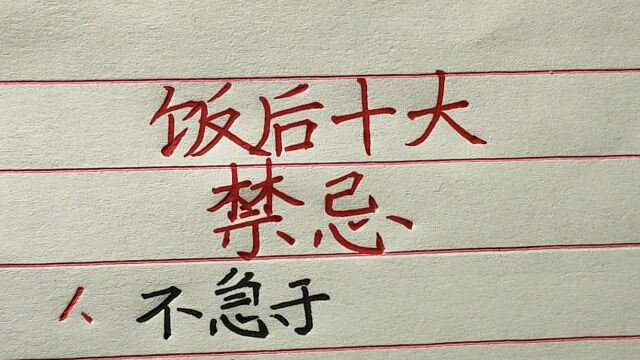 饭后十大
禁忌
1、不急于